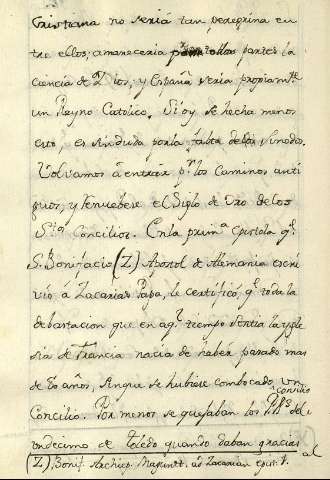 Cristiana no seria tan peregrina en
tre ellos; amaneceria por todas partes la
ciencia de Dios; y España seria propiamte.
un Reyno Catolico. Si oy se hecha menos
esto, es sin duda por la falta de los Sinodos.
Volvamos á entrar pr. los caminos anti
guos, y renuebese el Siglo de Oro de los
Stos. Concilios. En la prima. epistola q.
S. Bonifacio (Z) Apostol de Alemania escri
vió á Zacarias Papa, le certificó q. toda la
debastacion que en aql. tiempo sentia la Ygle
sia de Francia nacia de haber pasado mas
de 80 años, sin que se hubiese combocado un
Concilio. Por menos se quejaban los PPs. del concilio
undecimo de Toledo quando daban gracias al
(Z) Bonif. Archiep. Magunt. ad Zacariam epist. 1.